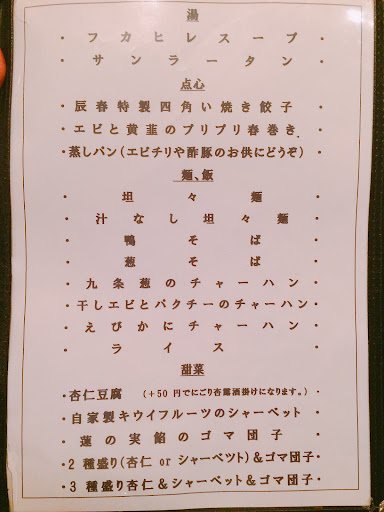 湯
・フカヒレスープ・
・サンラータン・
点心
・辰春特製四角い焼き餃子・
・エビと黄韮のプリプリ春巻き・
・蒸しパン(エビチリや酢豚のお供にどうぞ)・
麺、飯
・坦々麺・
・汁なし坦々麺・
・鴨そば・
・葱そば・
・九条葱のチャーハン・
・干しエビとパクチーのチャーハン・
・えびかにチャーハン・
・ライス・
甜菜
・杏仁豆腐 (+50円でにごり杏露酒掛けになります。)・
・自家製キウイフルーツのシャーベット・
・蓮の実餡のゴマ団子・
・2種盛り(杏仁 or シャーベツト)&ゴマ団子・
・3種盛り杏仁&シャーベット&ゴマ団子・